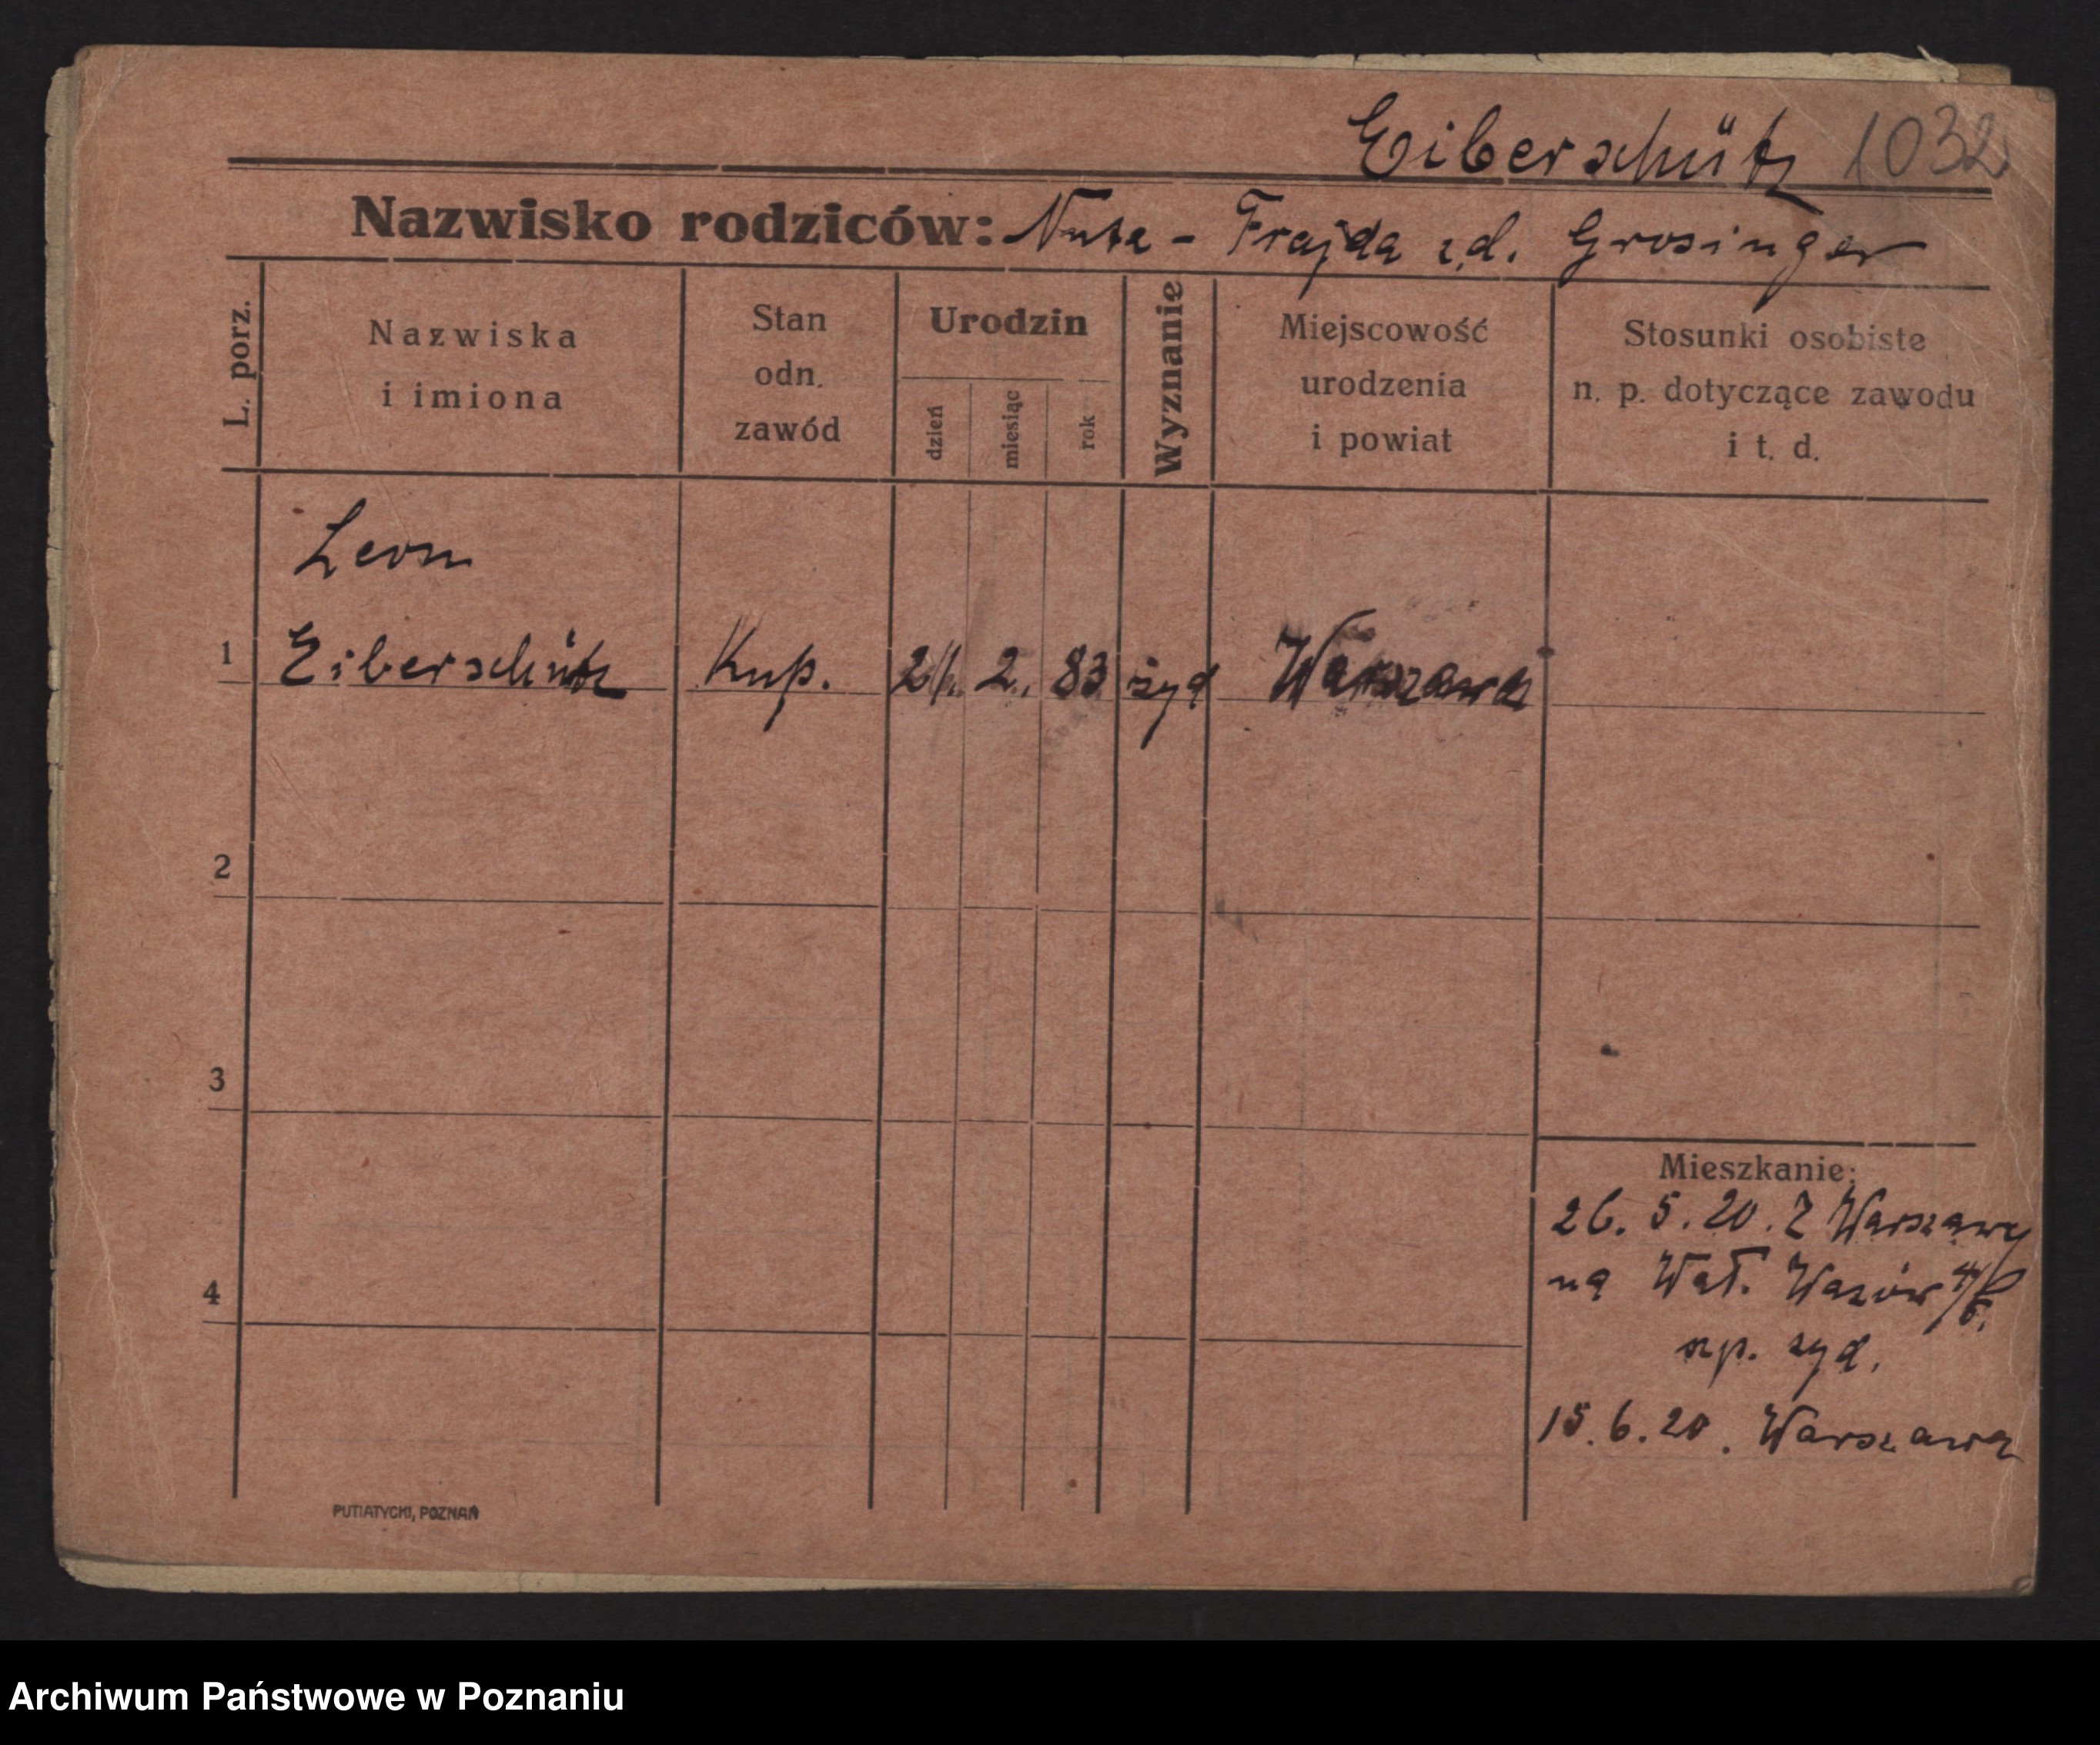 Eiberschütz 1032
Nazwisko rodziców: Nuta - Frajda z d. Grosinger
L. porz.
Nazwiska
i imiona
Stan
odn.
zawód
Urodzin
dzień
miesiąc
rok
Wyznanie
Miejscowość
urodzenia
i powiat
Stosunki osobiste
n. p. dotyczące zawodu
i t. d.
Leon
1 Eiberschütz Kup. 21. 2. 83 żyd Warszawa
2
3
4
Mieszkanie:
26. 5. 20. Z Warszawy
na Wał. Wazów 4/5.
szp. żyd.
15. 6. 20. Warszawa
PUTIATYCKI, POZNAŃ
Archiwum Państwowe w Poznaniu